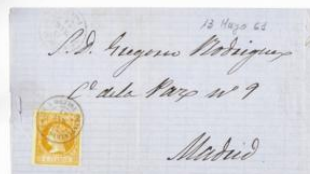 13 Mayo 61
S. D. Eugenio Rodriguez
Cº de la Paz nº 9
Madrid